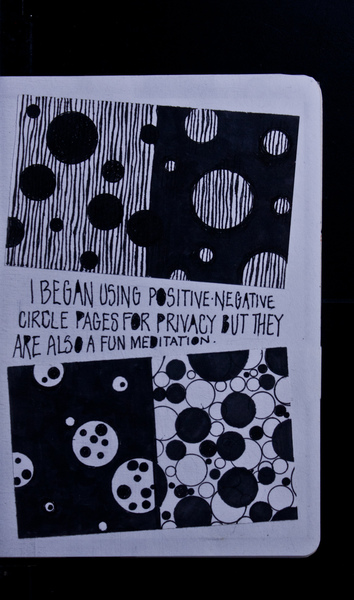 I BEGAN USING POSITIVE-NEGATIVE
CIRCLE PAGES FOR PRIVACY BUT THEY
ARE ALSO A FUN MEDITATION.